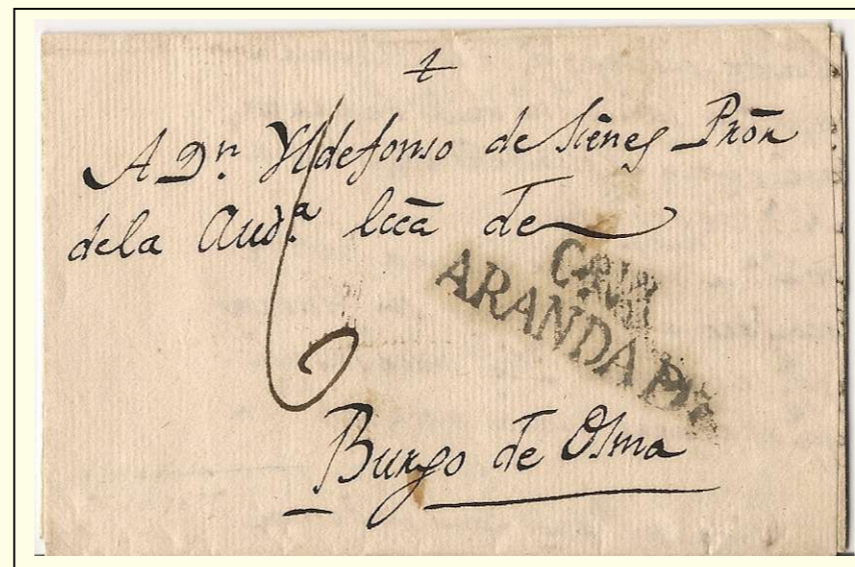 A Dn. Yldefonso de Sienes Prōn
dela Aud.a lccā de
C.A.VIA
ARANDA D
6
Burgo de Osma